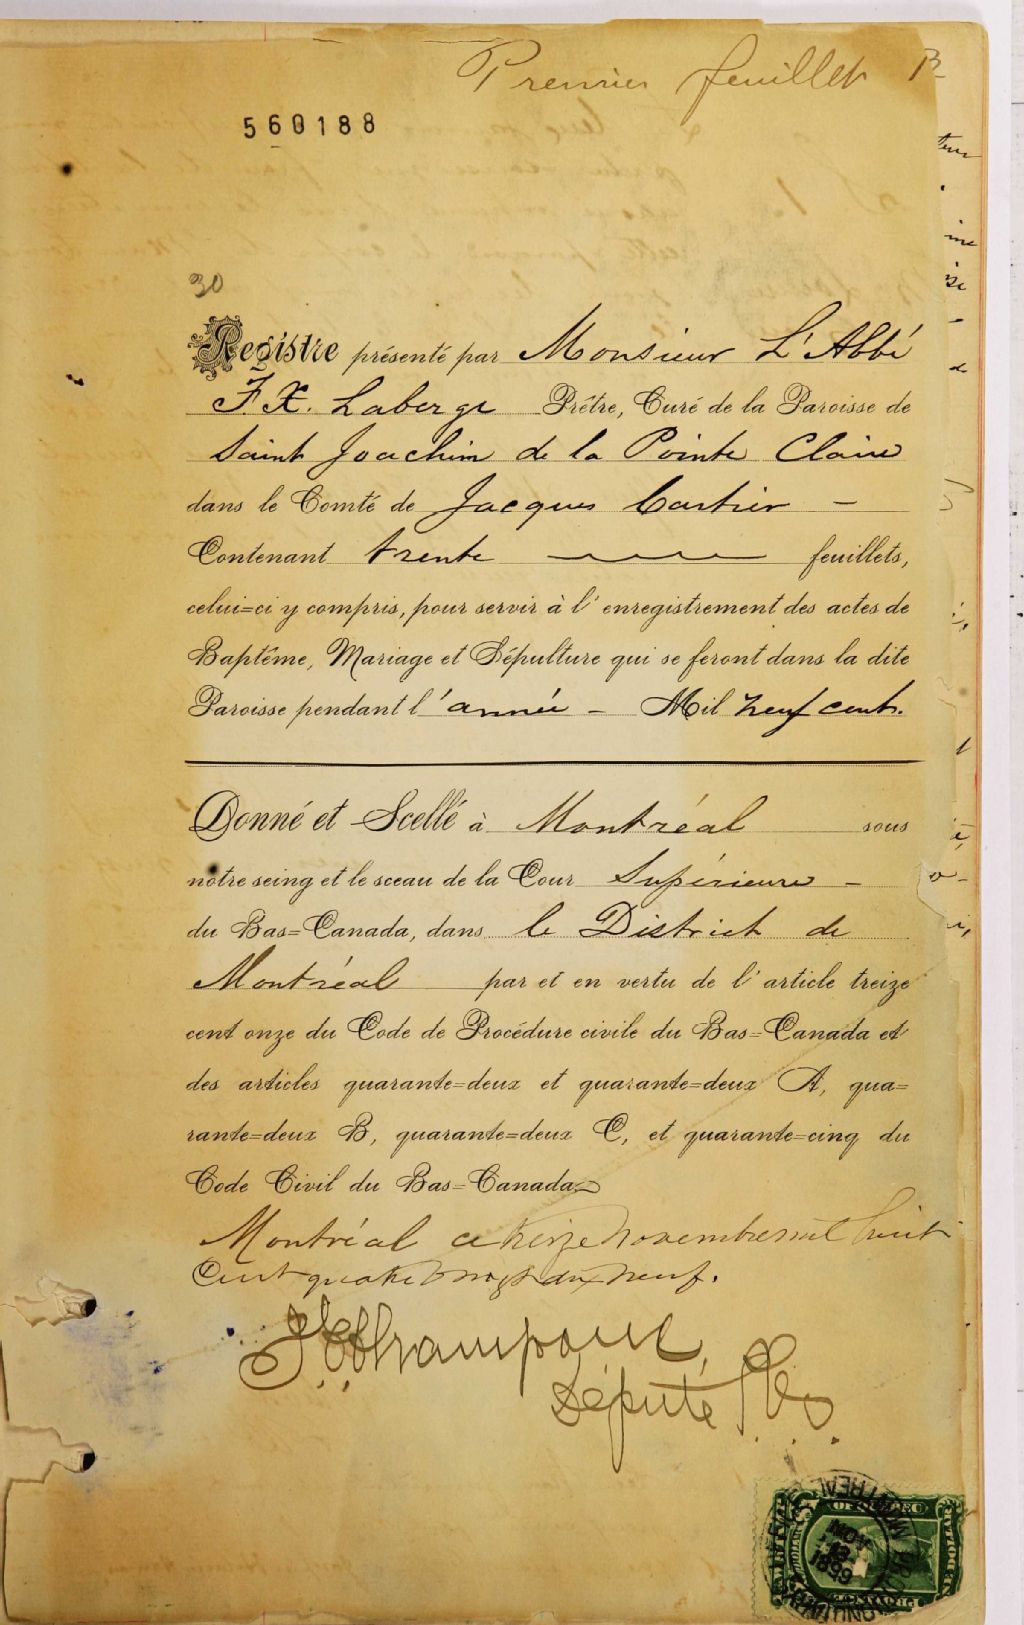 Premier feuillet
560188
30
Registre présenté par Monsieur L'Abbé
F.X. Laberge Prêtre, Curé de la Paroisse de
Saint Joachim de la Pointe Claire
dans le Comté de Jacques Cartier —
Contenant trente feuillets,
celui=ci y compris, pour servir à l'enregistrement des actes de
Baptême, Mariage et Sépulture qui se feront dans la dite
Paroisse pendant l'année — Mil neuf cent.
Donné et Scellé à Montréal sous
notre seing et le sceau de la Cour Supérieure —
du Bas=Canada, dans le District de
Montréal par et en vertu de l'article treize
cent onze du Code de Procédure civile du Bas=Canada et
des articles quarante=deux et quarante=deux A, qua=
rante=deux B, quarante=deux C, et quarante=cinq du
Code Civil du Bas=Canada.
Montréal ce treize novembre mil huit
Cent quatre vingt dix neuf.
Député
MONTREAL
NOV
13
1899